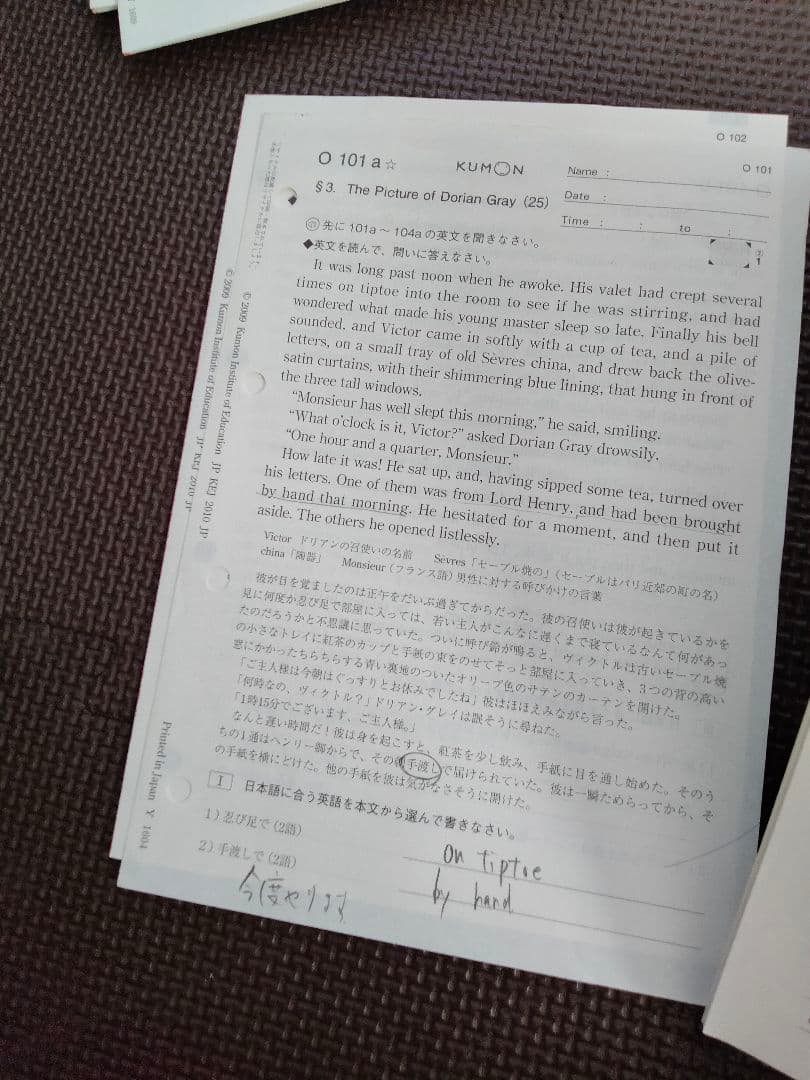 O 102
O 101
O 101 a☆
KUMON
Name :
§3. The Picture of Dorian Gray (25)
Date :
Time : : to :
先に 101a～104a の英文を聞きなさい。
◆英文を読んで、問いに答えなさい。
It was long past noon when he awoke. His valet had crept several
times on tiptoe into the room to see if he was stirring, and had
wondered what made his young master sleep so late. Finally his bell
sounded, and Victor came in softly with a cup of tea, and a pile of
letters, on a small tray of old Sèvres china, and drew back the olive-
satin curtains, with their shimmering blue lining, that hung in front of
the three tall windows.
"Monsieur has well slept this morning," he said, smiling.
"What o'clock is it, Victor?" asked Dorian Gray drowsily.
"One hour and a quarter, Monsieur."
How late it was! He sat up, and, having sipped some tea, turned over
his letters. One of them was from Lord Henry, and had been brought
by hand that morning. He hesitated for a moment, and then put it
aside. The others he opened listlessly.
Victor ドリアンの召使いの名前 Sèvres「セーブル焼の」(セーブルはパリ近郊の町の名)
china「陶器」 Monsieur (フランス語) 男性に対する呼びかけの言葉
彼が目を覚ましたのは正午をだいぶ過ぎてからだった。彼の召使いは彼が起きているかを
見に何度か忍び足で部屋に入っては、若い主人がこんなに遅くまで寝ているなんて何があっ
たのだろうかと不思議に思っていた。ついに呼び鈴が鳴ると、ヴィクトルは古いセーブル焼
の小さなトレイに紅茶のカップと手紙の束をのせてそっと部屋に入っていき、3つの背の高い
窓にかかったちらちらする青い裏地のついたオリーブ色のサテンのカーテンを開けた。
「ご主人様は今朝はぐっすりとお休みでしたね」彼はほほえみながら言った。
「何時なの、ヴィクトル？」ドリアン・グレイは眠そうに尋ねた。
「1時15分でございます、ご主人様。」
なんと遅い時間だ！彼は身を起こすと、紅茶を少し飲み、手紙に目を通し始めた。そのう
ちの1通はヘンリー卿からで、その 手渡しで届けられていた。彼は一瞬ためらってから、そ
の手紙を横にどけた。他の手紙を彼は気がなさそうに開けた。
I 日本語に合う英語を本文から選んで書きなさい。
1) 忍び足で (2語)
on tiptoe
2) 手渡しで (2語)
by hand
今度やります
© 2009 Kumon Institute of Education JP KEJ 2010 JP
© 2009 Kumon Institute of Education JP KEJ 2010 JP
Printed in Japan Y 1604